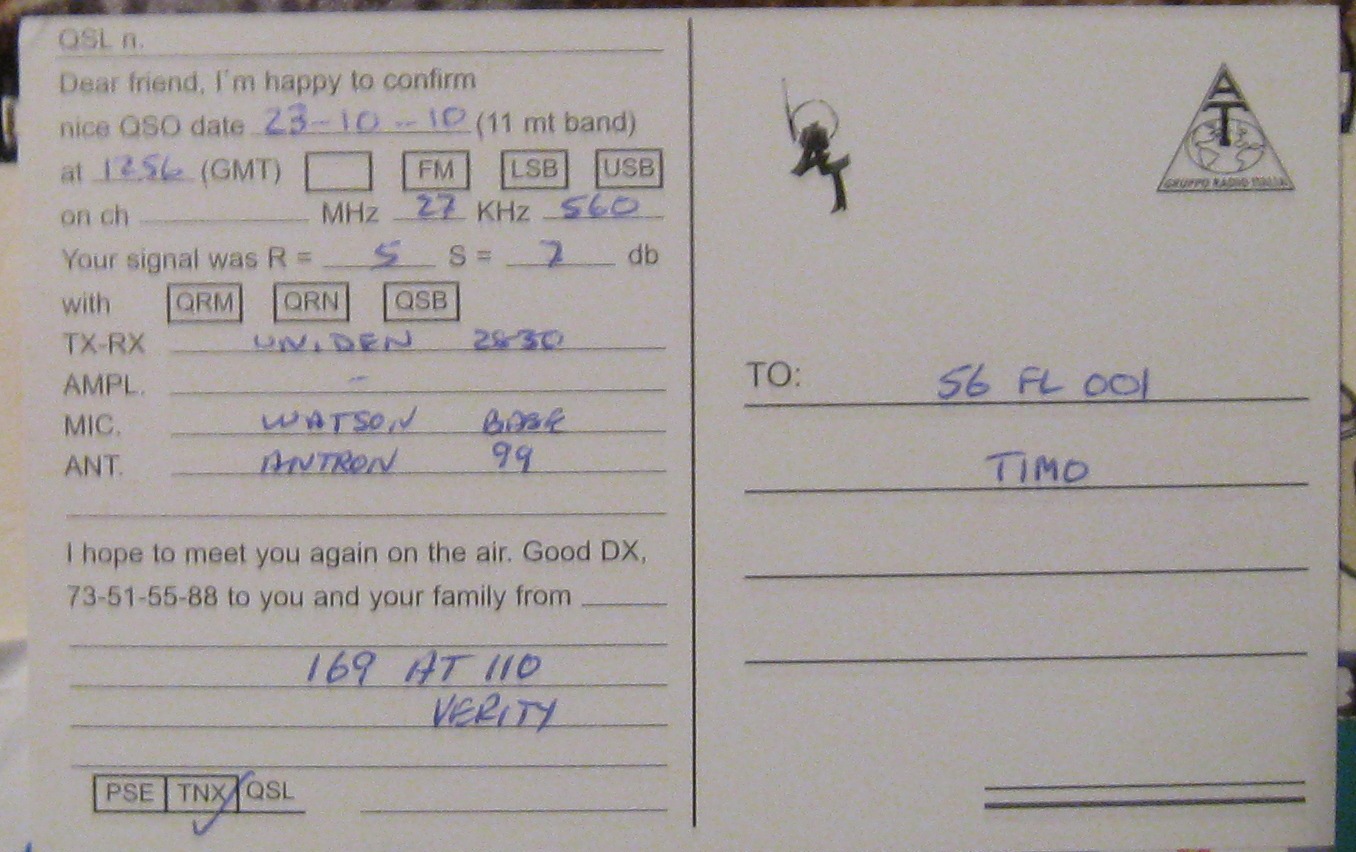 QSL n.
Dear friend, I'm happy to confirm
nice QSO date 23-10-10 (11 mt band)
at 1256 (GMT) FM LSB USB
on ch MHz 27 KHz 560
Your signal was R = 5 S = 7 db
with QRM QRN QSB
TX-RX UNIDEN 2830
AMPL. -
MIC. WATSON BASE
ANT. ANTRON 99
I hope to meet you again on the air. Good DX,
73-51-55-88 to you and your family from
169 AT 110
VERITY
PSE TNX QSL
AT
AT
GRUPPO RADIO ITALIA
TO: 56 FL 001
TIMO